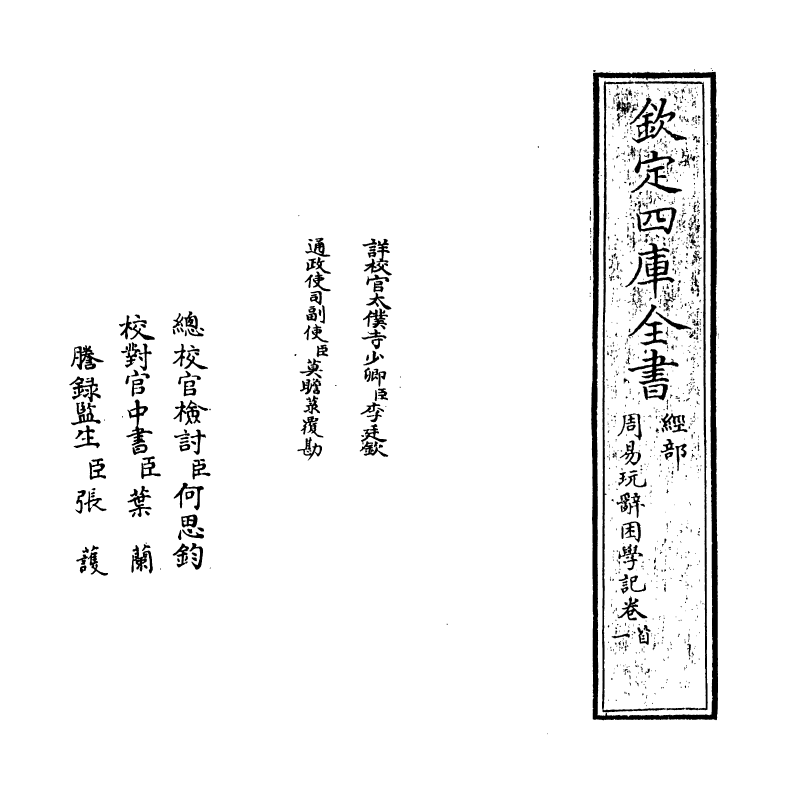 欽定四庫全書
經部
周易玩辭困學記卷首一
詳校官太僕寺少卿臣李廷欽
通政使司副使臣莫瞻菉覆勘
總校官檢討臣何思鈞
校對官中書臣葉蘭
謄錄監生臣張頀